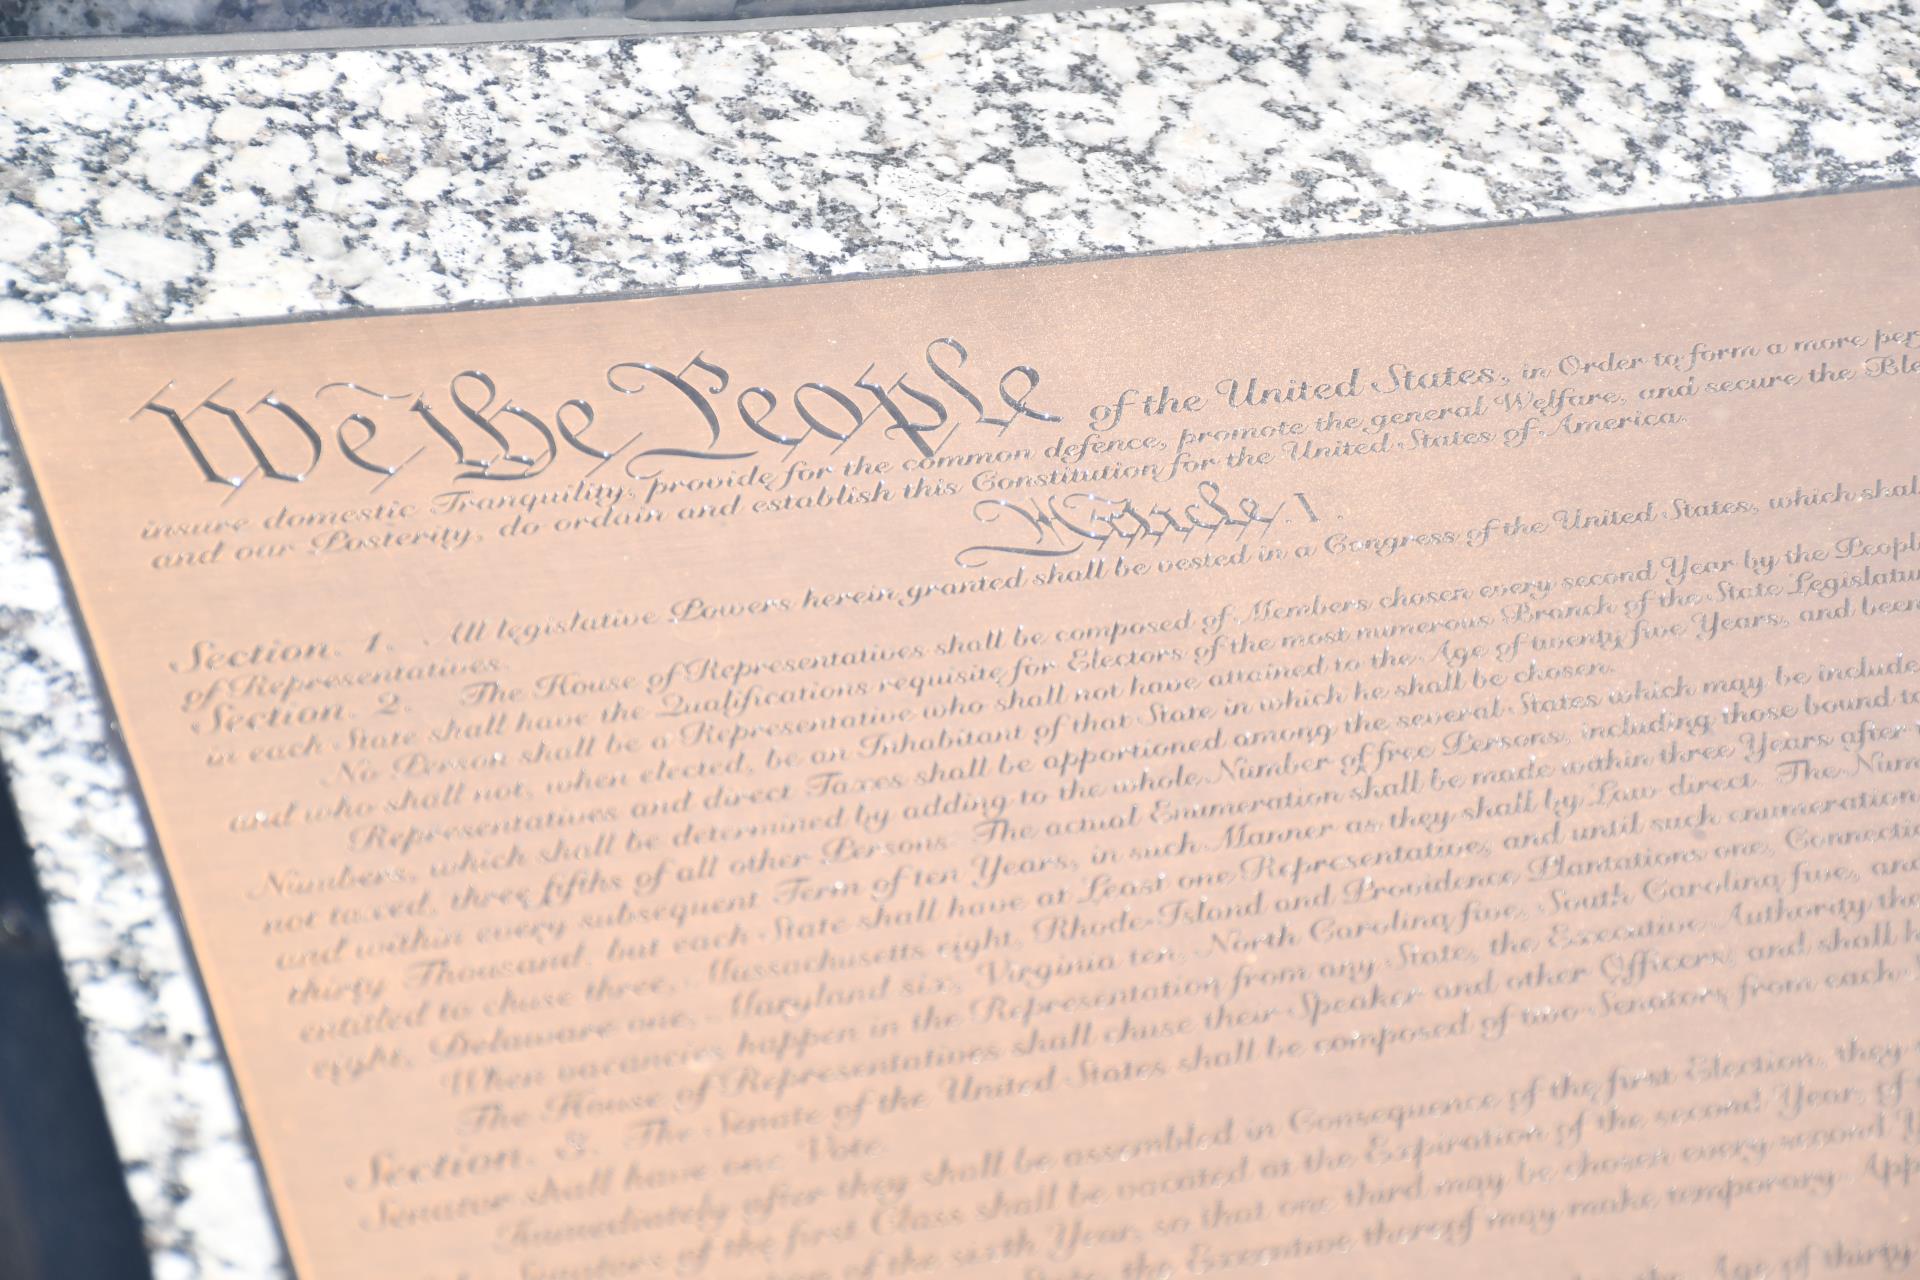 We the People of the United States, in Order to form a more per
insure domestic Tranquility, provide for the common defence, promote the general Welfare, and secure the Ble
and our Posterity, do ordain and establish this Constitution for the United States of America.
Article. I.
Section. 1. All legislative Powers herein granted shall be vested in a Congress of the United States, which shal
of Representatives.
Section. 2. The House of Representatives shall be composed of Members chosen every second Year by the Peopl
in each State shall have the Qualifications requisite for Electors of the most numerous Branch of the State Legislatu
No Person shall be a Representative who shall not have attained to the Age of twenty five Years, and been
and who shall not, when elected, be an Inhabitant of that State in which he shall be chosen.
Representatives and direct Taxes shall be apportioned among the several States which may be include
Numbers, which shall be determined by adding to the whole Number of free Persons, including those bound to
not taxed, three fifths of all other Persons. The actual Enumeration shall be made within three Years after
and within every subsequent Term of ten Years, in such Manner as they shall by Law direct. The Num
thirty Thousand, but each State shall have at Least one Representative; and until such enumeration
entitled to chuse three, Massachusetts eight, Rhode-Island and Providence Plantations one, Connectic
eight, Delaware one, Maryland six, Virginia ten, North Carolina five, South Carolina five, and
When vacancies happen in the Representation from any State, the Executive Authority the
The House of Representatives shall chuse their Speaker and other Officers; and shall h
Section. 3. The Senate of the United States shall be composed of two Senators from each
Senator shall have one Vote.
Immediately after they shall be assembled in Consequence of the first Election, they
Senators of the first Class shall be vacated at the Expiration of the second Year, of
of the sixth Year, so that one third may be chosen every second Y
State, the Executive thereof may make temporary App
Age of thirty